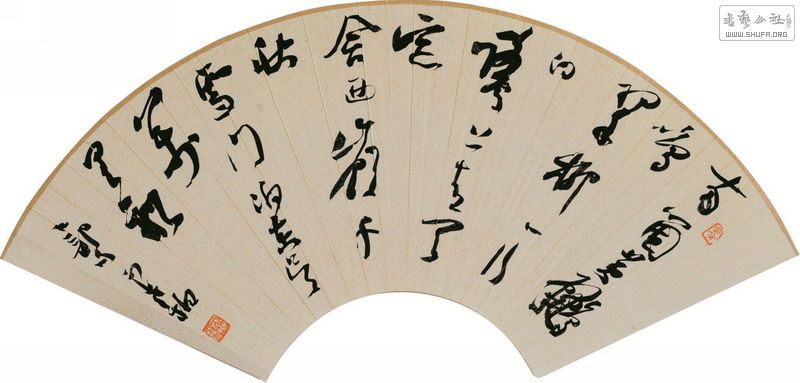 書藝公社
WWW.SHUFA.ORG
两個黄鹂
鸣
翠柳一行
白
鹭上青天
窗
含西岭千
秋
雪门泊东吴
万
里船